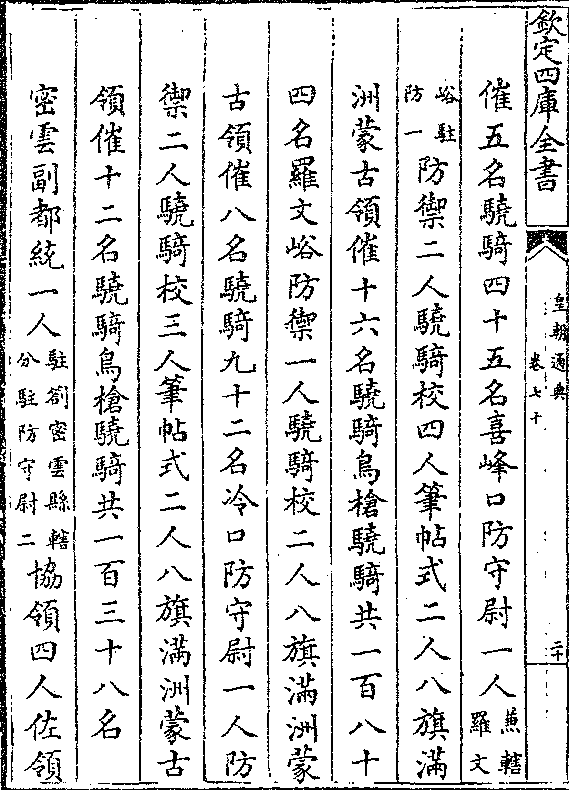 欽定四庫全書
皇朝通典
卷七十
二十
催五名驍騎四十五名喜峰口防守尉一人兼轄羅文
峪駐防一防禦二人驍騎校四人筆帖式二人八旗滿
洲蒙古領催十六名驍騎鳥槍驍騎共一百八十
四名羅文峪防禦一人驍騎校二人八旗滿洲蒙
古領催八名驍騎九十二名冷口防守尉一人防
禦二人驍騎校三人筆帖式二人八旗滿洲蒙古
領催十二名驍騎鳥槍驍騎共一百三十八名
密雲副都統一人駐劄密雲縣轄分駐防守尉二協領四人佐領